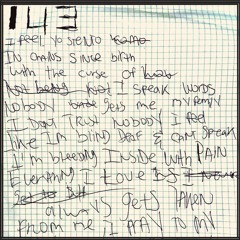 143
I FEEL YO SIENTO
IN CHAINS SINCE BIRTH
WITH THE CURSE OF
I SPEAK WORDS
NOBODY GETS ME MY
I DON'T TRUST NOBODY I FEEL
LIKE I'M BLIND DEAF & CAN'T SPEAK
I'M BLEEDING INSIDE WITH PAIN
EVERYTHING I LOVE IS
always gets TAKEN
FROM ME I PRAY TO MY